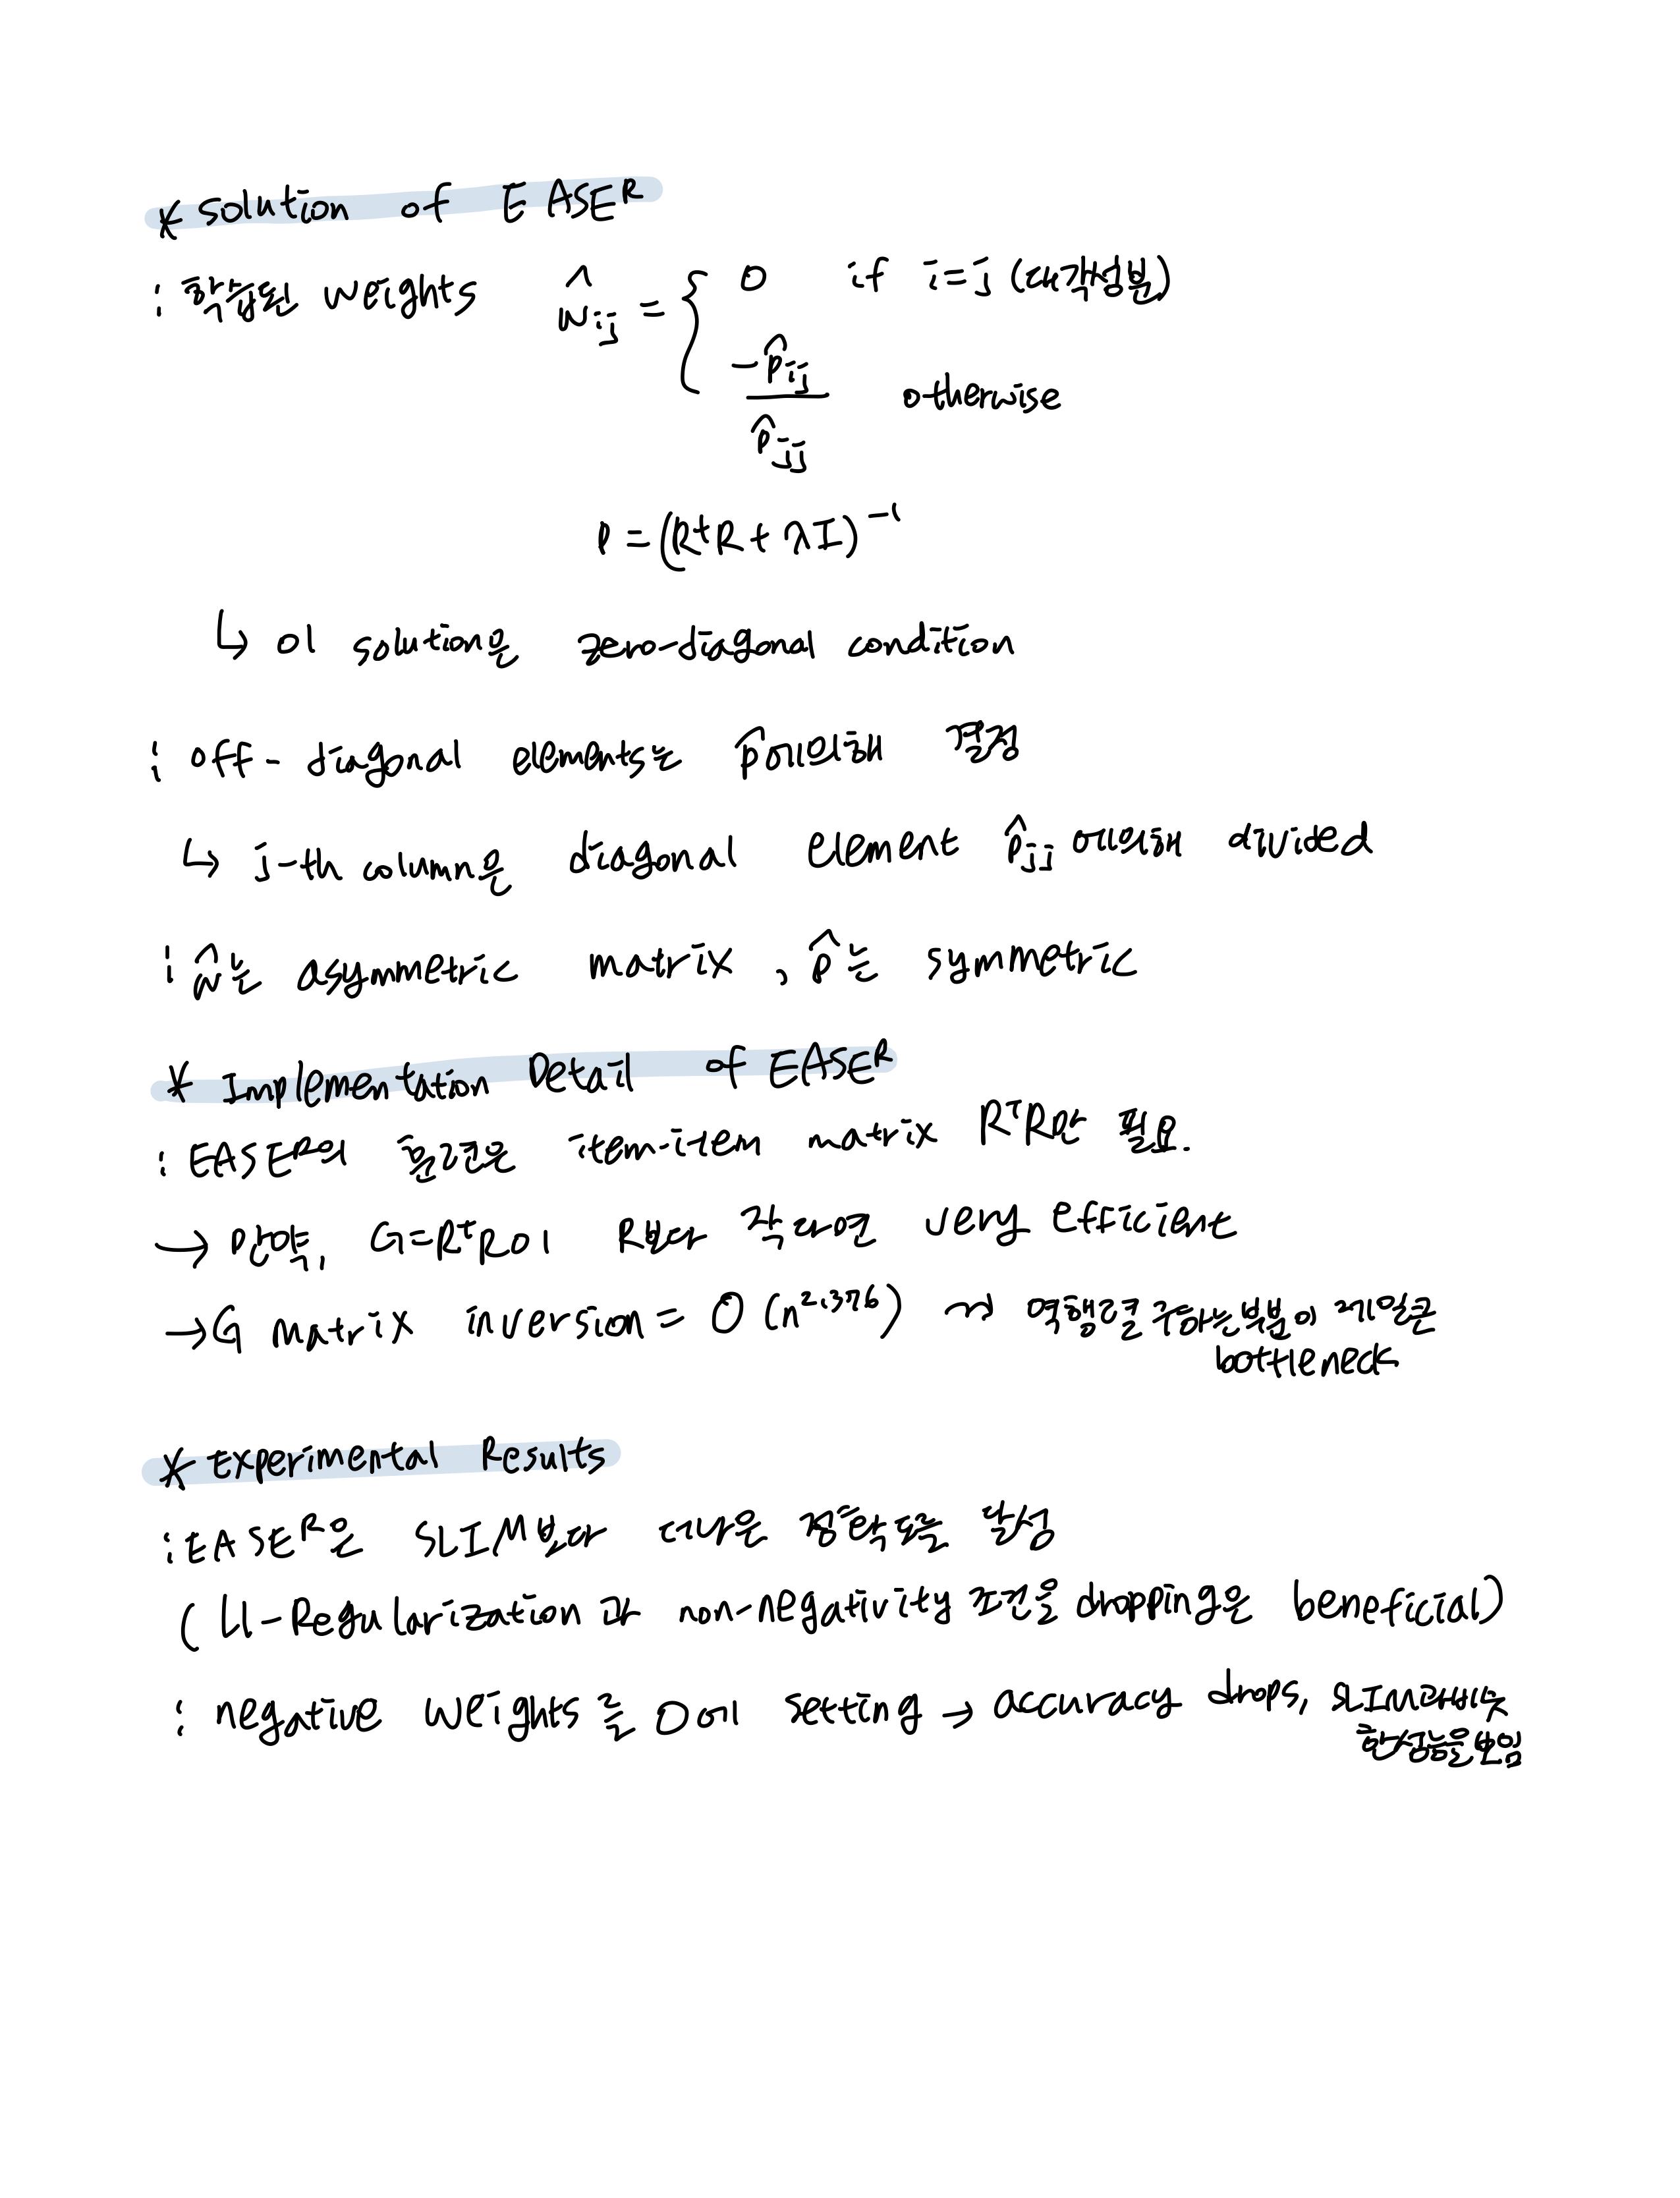 * Solution of EASE^R
: 학습된 weights ŵ_ij = { 0 if i=j (대각성분)
-p̂_ij / p̂_jj otherwise
P = (R^tR + λI)^-1
↳ 이 solution은 zero-diagonal condition
: off-diagonal elements는 p̂에의해 결정
↳ j-th column은 diagonal element p̂_jj에의해 divided
: ŵ는 asymmetric matrix, p̂는 symmetric
* Implementation Detail of EASE^R
: EASE^R의 훈련은 item-item matrix R^TR만 필요.
→ 만약, G=R^tR이 R보다 작다면 very efficient
→ G matrix inversion = O(n^2.376) ⇝ 역행렬 구하는부분이 제일큰
bottleneck
* Experimental Results
: EASE^R은 SLIM보다 더나은 정확도를 달성
( L1-Regularization 과 non-negativity 조건을 dropping은 beneficial)
: negative weights를 0에 setting → accuracy drops, SLIM과비슷
한성능을보임